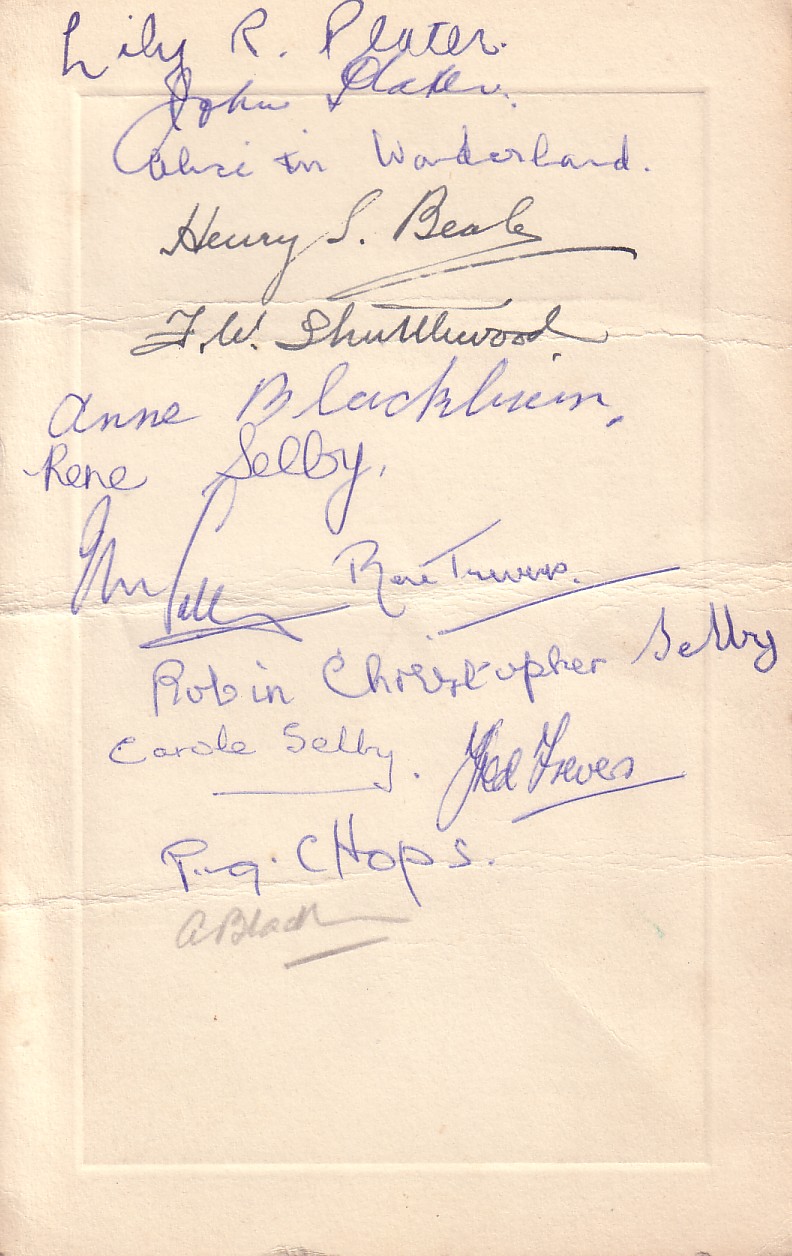 Lily R. Plater.
John Plater.
Alice in Wonderland.
Henry S. Beale
F.W. Shuttlewood
Anne Blackburn,
Rene Selby.
Rene Treves.
Robin Christopher Selby
Carole Selby. Fred Treves
P.g. CHops.
A Black